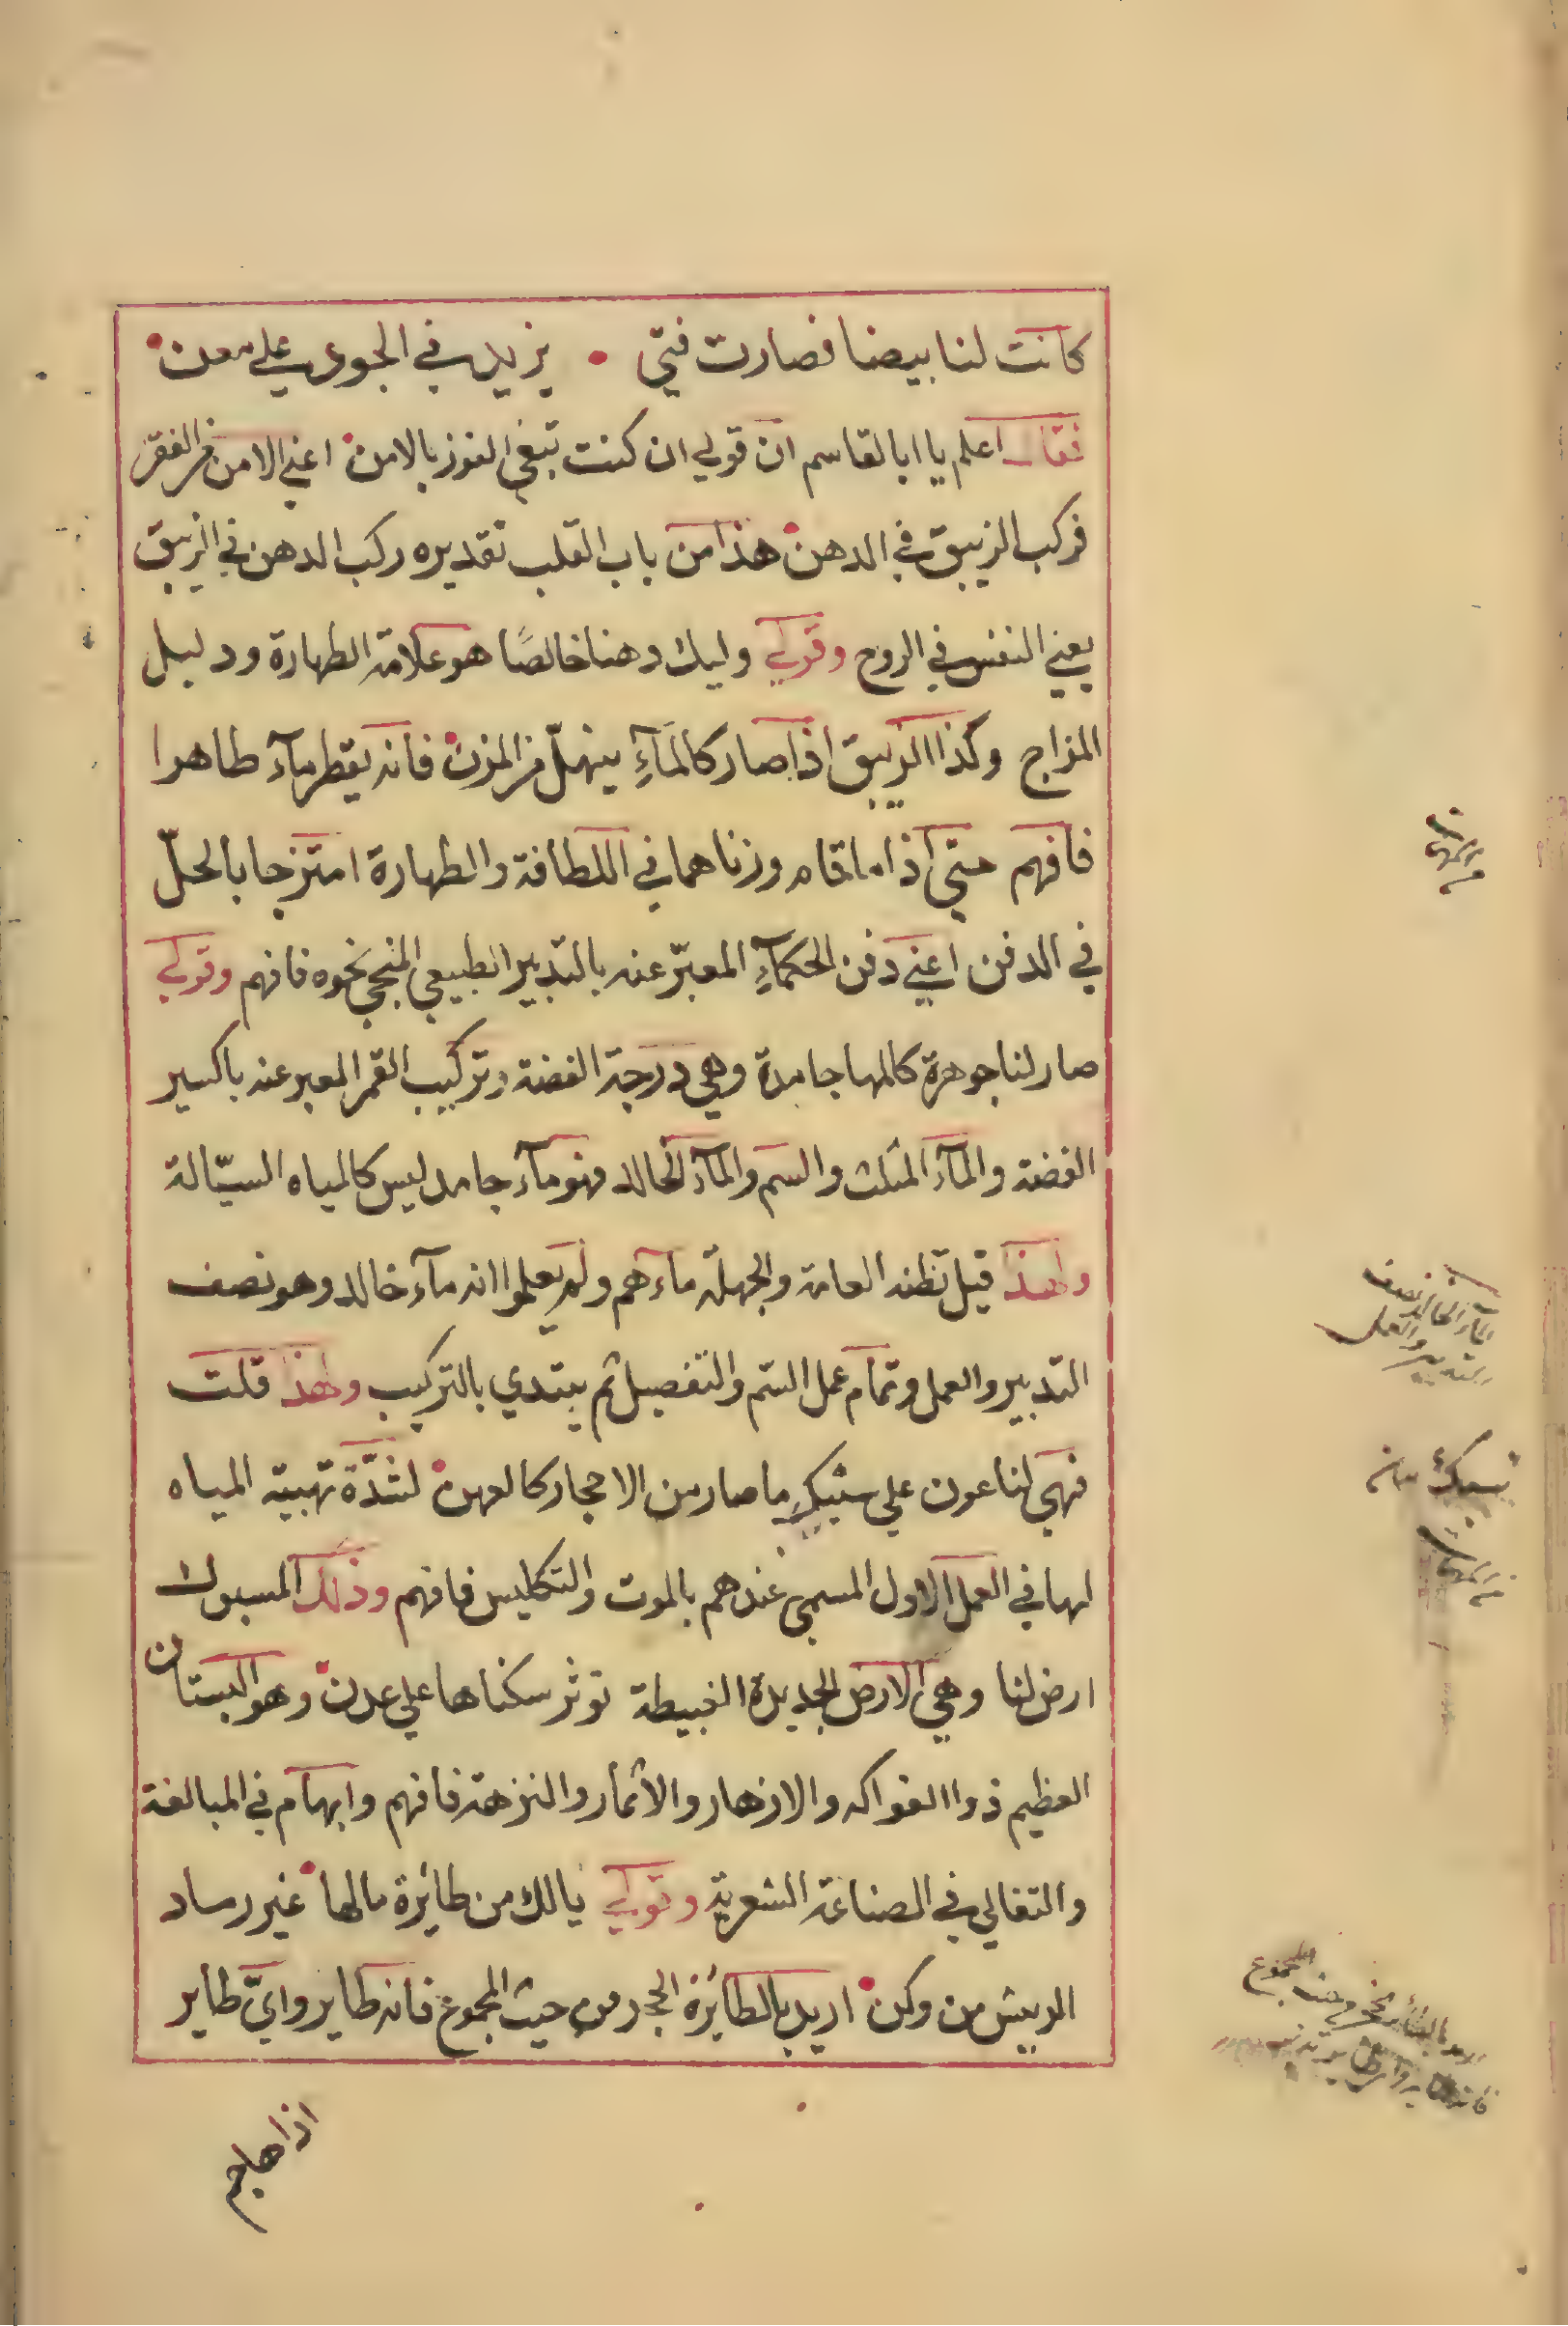 كانت لنا بيضا فصارت فتي • يزيد في الجود علي معن
فقال اعلم يا ابا القاسم ان قولي ان كنت تبغي الفوز بالامن اعني الامن من الفقر
فركب الزيبق في الدهن هذا من باب القلب تقديره ركب الدهن في الزيبق
يعني النفس في الروح وقولي وليك دهنا خالصًا هو علامة الطهارة ودليل
المزاج وكذا الزيبق اذا صار كالمآءِ ينهلّ من المزن فانه يقطر مآء طاهرا
فافهم حتي اذا ما قام وزناهما في اللطافة والطهارة امتزجا بالحلّ
في الدفن اعني دفن الحكمآءِ المعبّر عنه بالتدبير الطبيعي المنحي نحوه فافهم وقولي
صار لنا جوهرة كالمها جامدة وهي درجة الفضة وتركيب القمر المعبر عنه باكسير
الفضة والمآء المثلث والسم والمآء الخالد فهو مآء جامد ليس كالمياه السيّالة
ولهذا قيل تظنه العامة والجهلة ماءهم ولم يعلموا انه مآء خالد وهو نصف
التدبير والعمل وتمام عمل الستم والتفصيل ثم يبتدي بالتركيب ولهذا قلت
فهي لنا عون علي سبيكِ ما صار من الاحجار كالعهن لشدّة تهبية المياه
لها في العمل الاول المسمي عندهم بالموت والتكليس فافهم وذلك المسبوك
ارض لنا وهي الارض الجديدة الغبيطة توثر سكناها علي عدن وهو البستان
العظيم ذوا الفواكه والازهار والاثمار والنزهة فافهم وابهام في المبالغة
والتغالي في الصناعة الشعرية وقولي يالك من طائرة مالها غير رساد
الريش من وكن اريد بالطائرة الحجر من حيث المجموع فانه طاير وايّ طاير
اذا هاجم
المآء الخالد نصف
التدبير والعمل